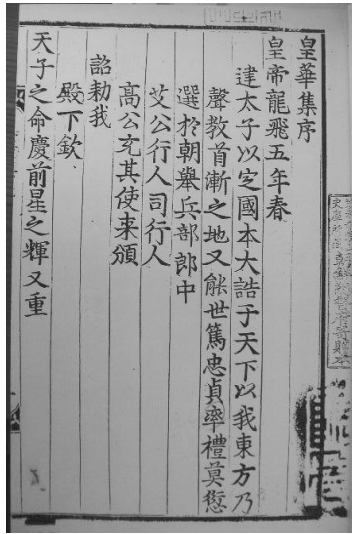 皇華集序
皇帝龍飛五年春
建太子以定國本大誥于天下以我東方乃
聲教首漸之地又能世篤忠貞率禮莫愆
選於朝舉兵部郎中
艾公行人司行人
高公充其使来頒
詔勑我
殿下欽
天子之命慶前星之輝又重